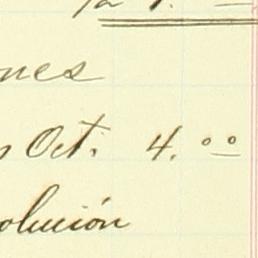 nes
Oct. 4.00
olución